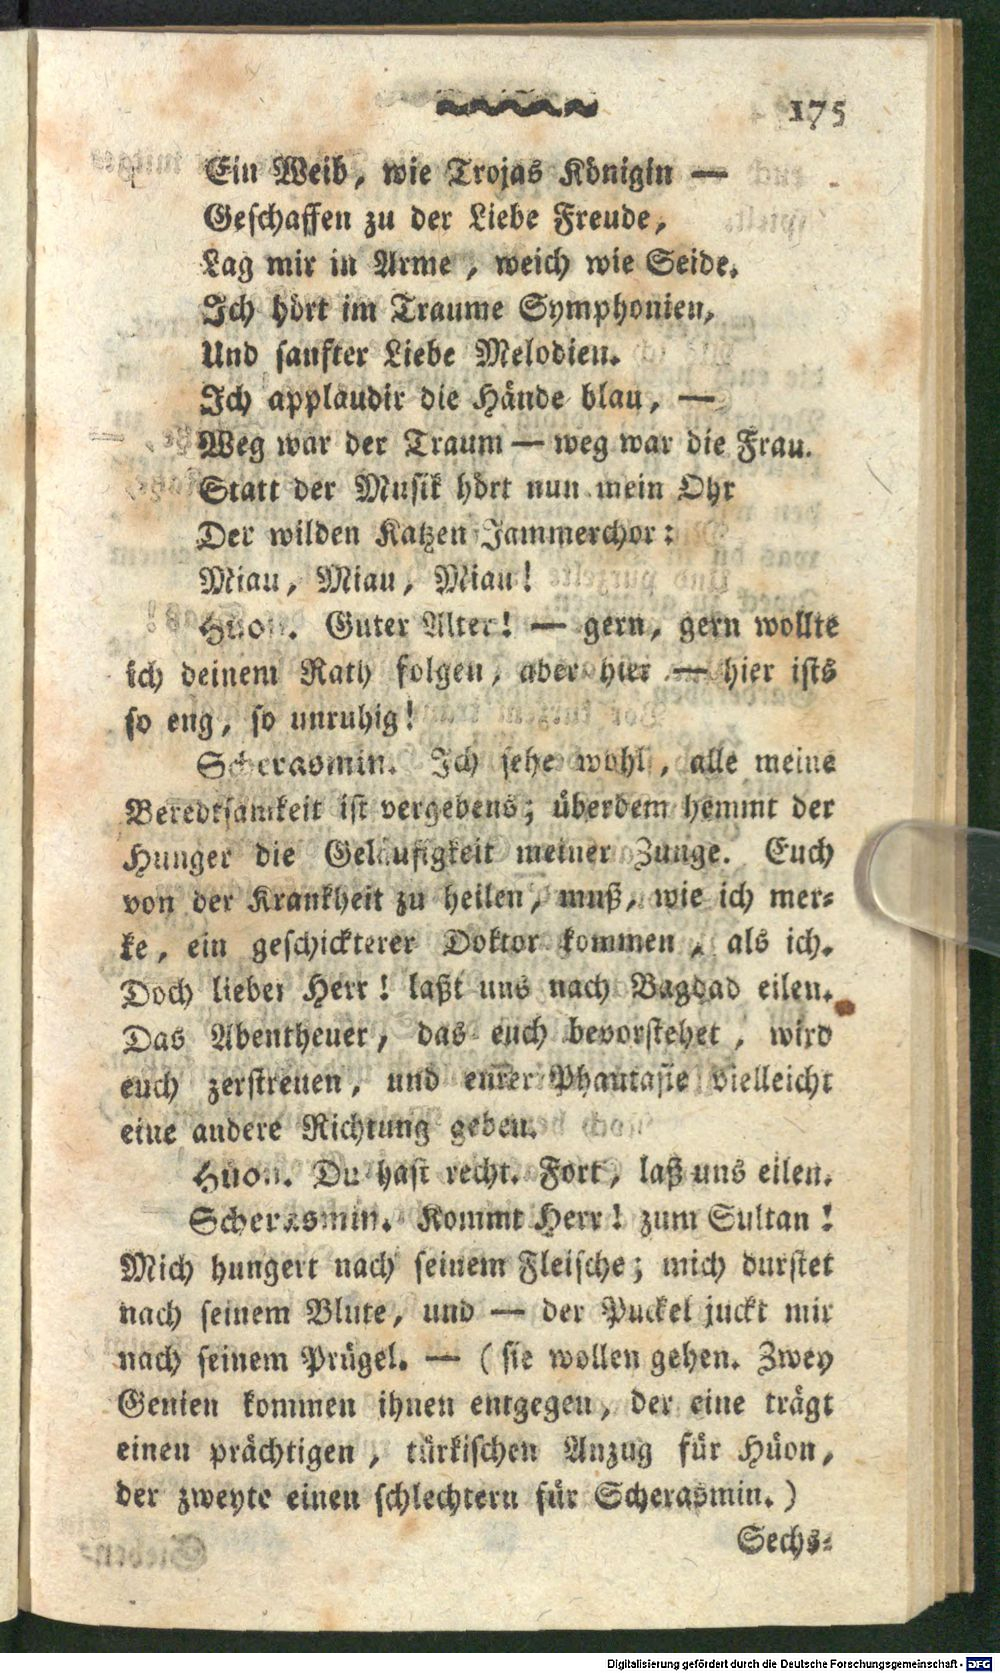 175
Ein Weib, wie Trojas Königin —
Geschaffen zu der Liebe Freude,
Lag mir in Arme, weich wie Seide.
Ich hört im Traume Symphonien,
Und sanfter Liebe Melodien.
Ich applaudir die Hände blau, —
Weg war der Traum — weg war die Frau.
Statt der Musik hört nun mein Ohr
Der wilden Katzen Jammerchor:
Miau, Miau, Miau!
Hüon. Guter Alter! — gern, gern wollte
ich deinem Rath folgen, aber hier — hier ists
so eng, so unruhig!
Scherasmin. Ich sehe wohl, alle meine
Beredtsamkeit ist vergebens; überdem hemmt der
Hunger die Geläufigkeit meiner Zunge. Euch
von der Krankheit zu heilen, muß, wie ich mer-
ke, ein geschickterer Doktor kommen, als ich.
Doch lieber Herr! laßt uns nach Bagdad eilen.
Das Abentheuer, das euch bevorstehet, wird
euch zerstreuen, und eurer Phantasie vielleicht
eine andere Richtung geben.
Hüon. Du hast recht. Fort, laß uns eilen.
Scherasmin. Kommt Herr! zum Sultan!
Mich hungert nach seinem Fleische; mich durstet
nach seinem Blute, und — der Puckel juckt mir
nach seinem Prügel. — (sie wollen gehen. Zwey
Genien kommen ihnen entgegen, der eine trägt
einen prächtigen, türkischen Anzug für Hüon,
der zweyte einen schlechtern für Scherasmin.)
Sechs-
Digitalisierung gefördert durch die Deutsche Forschungsgemeinschaft - DFG